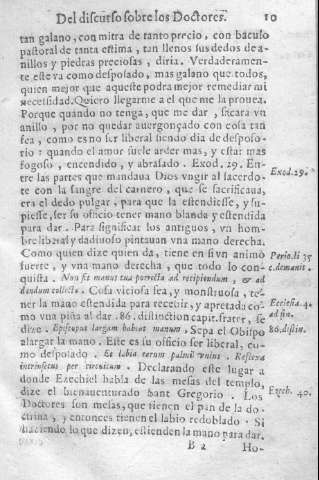 Del discurso sobre los Doctores. 10
tan galano, con mitra de tanto precio, con baculo
pastoral de tanta estima, tan llenos sus dedos de a-
nillos y piedras preciosas, diria. Verdaderamen-
te este va como desposado, mas galano que todos,
quien mejor que aqueste podra mejor remediar mi
necessidad. Quiero llegarme a el que me la prouea.
Porque quando no tenga, que me dar, sacara vn
anillo, por no quedar auergonçado con cosa tan
fea, como es no ser liberal siendo dia de desposo-
rio: quando el amor suele arder mas, y estar mas
fogoso, encendido, y abrasado. Exod. 29. En-
Exod. 29.
tre las partes que mandaua Dios vngir al sacerdo-
te con la sangre del carnero, que se sacrificaua,
era el dedo pulgar, para que la estendiesse, y su-
piesse, ser su oficio tener mano blanda y estendida
para dar. Para significar los antiguos, vn hom-
bre liberal y dadiuoso pintauan vna mano derecha.
Como quien dize quien da, tiene en si vn animo
Perio. li 35
fuerte, y vna mano derecha, que todo lo con-
c. de manib.
quista. Non sit manus tua porrecta ad recipiendum, & ad
dandum collecta. Cosa viciosa sea, y monstruosa, te-
ner la mano estendida para recebir, y apretada co-
Ecclesia. 4.
ad fin.
mo vna piña al dar. 86. distinction capit. frater, se
86. distin.
dize. Episcopus largam habeat manum. Sepa el Obispo
alargar la mano. Este es su oficio ser liberal, co-
mo desposado. Et labia eorum palmi vnius. Reflexa
intrinsecus per circuitum. Declarando este lugar a
donde Ezechiel habla de las mesas del templo,
dize el bienauenturado Sant Gregorio. Los
Ezech. 40.
Doctores son mesas, que tienen el pan de la do-
ctrina, y entonces tienen el labio redoblado. Si
haciendo lo que dizen, estienden la mano para dar.
B 2 Ho-